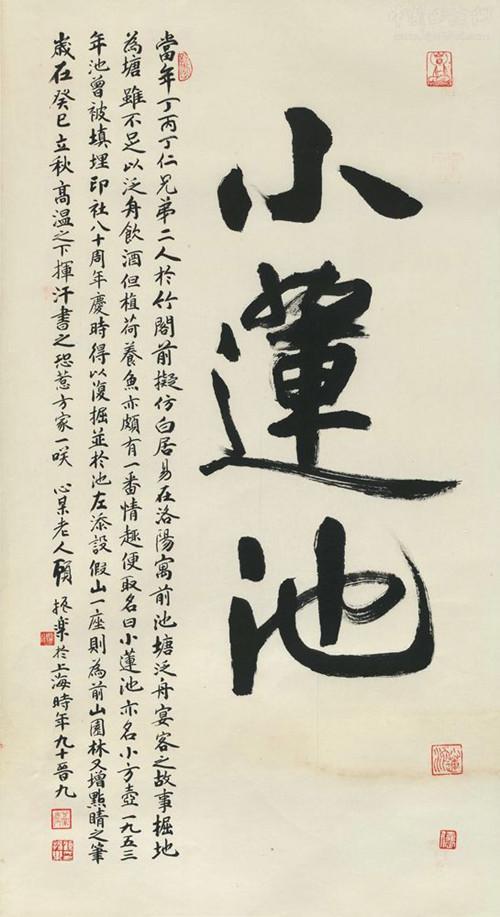 小蓮池
當年丁丙丁仁兄弟二人於竹閣前擬仿白居易在洛陽寓前池塘泛舟宴客之故事掘地
為塘雖不足以泛舟飲酒但植荷養魚亦頗有一番情趣便取名曰小蓮池亦名小方壺一九五三
年池曾被填埋印社八十周年慶時得以復掘並於池左添設假山一座則為前山園林又增點睛之筆
歲在癸巳立秋高溫之下揮汗書之恐惹方家一咲 心某老人顧振樂於上海時年九十晉九